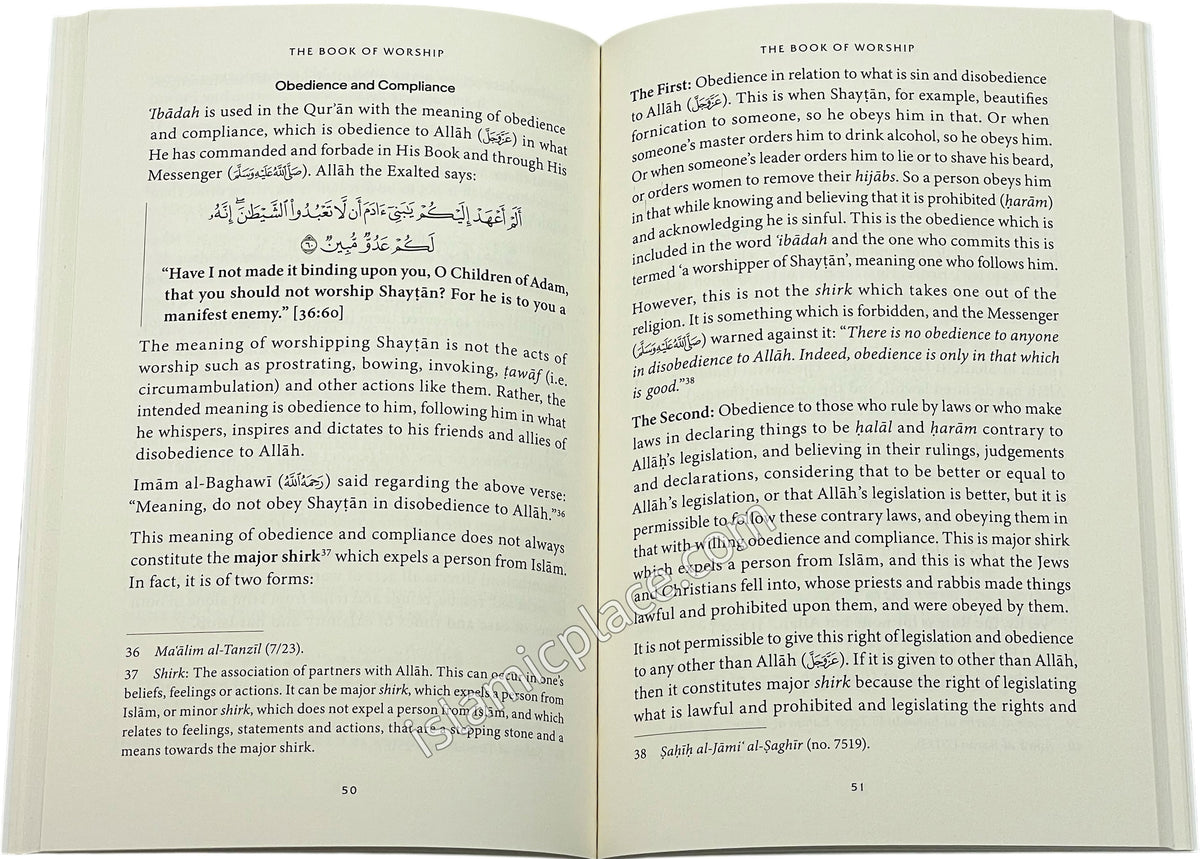 THE BOOK OF WORSHIP
Obedience and Compliance
ʿIbādah is used in the Qurʾān with the meaning of obedience
and compliance, which is obedience to Allāh (عَزَّوَجَلَّ) in what
He has commanded and forbade in His Book and through His
Messenger (صَلَّى اللَّهُ عَلَيْهِ وَسَلَّمَ). Allāh the Exalted says:
أَلَمْ أَعْهَدْ إِلَيْكُمْ يَٰبَنِىٓ ءَادَمَ أَن لَّا تَعْبُدُوا۟ ٱلشَّيْطَٰنَ ۖ إِنَّهُۥ
لَكُمْ عَدُوٌّ مُّبِينٌ ٦٠
“Have I not made it binding upon you, O Children of Adam,
that you should not worship Shayṭān? For he is to you a
manifest enemy.” [36:60]
The meaning of worshipping Shayṭān is not the acts of
worship such as prostrating, bowing, invoking, ṭawāf (i.e.
circumambulation) and other actions like them. Rather, the
intended meaning is obedience to him, following him in what
he whispers, inspires and dictates to his friends and allies of
disobedience to Allāh.
Imām al-Baghawī (رَحِمَهُ اللَّهُ) said regarding the above verse:
“Meaning, do not obey Shayṭān in disobedience to Allāh.”36
This meaning of obedience and compliance does not always
constitute the major shirk37 which expels a person from Islām.
In fact, it is of two forms:
36 Maʿālim al-Tanzīl (7/23).
37 Shirk: The association of partners with Allāh. This can occur in one’s
beliefs, feelings or actions. It can be major shirk, which expels a person from
Islām, or minor shirk, which does not expel a person from Islām, and which
relates to feelings, statements and actions, that are a stepping stone and a
means towards the major shirk.
50
THE BOOK OF WORSHIP
The First: Obedience in relation to what is sin and disobedience
to Allāh (عَزَّوَجَلَّ). This is when Shayṭān, for example, beautifies
fornication to someone, so he obeys him in that. Or when
someone’s master orders him to drink alcohol, so he obeys him.
Or when someone’s leader orders him to lie or to shave his beard,
or orders women to remove their hijābs. So a person obeys him
in that while knowing and believing that it is prohibited (ḥarām)
and acknowledging he is sinful. This is the obedience which is
included in the word ʿibādah and the one who commits this is
termed ‘a worshipper of Shayṭān’, meaning one who follows him.
However, this is not the shirk which takes one out of the
religion. It is something which is forbidden, and the Messenger
(صَلَّى اللَّهُ عَلَيْهِ وَسَلَّمَ) warned against it: “There is no obedience to anyone
in disobedience to Allāh. Indeed, obedience is only in that which
is good.”38
The Second: Obedience to those who rule by laws or who make
laws in declaring things to be ḥalāl and ḥarām contrary to
Allāh’s legislation, and believing in their rulings, judgements
and declarations, considering that to be better or equal to
Allāh’s legislation, or that Allāh’s legislation is better, but it is
permissible to follow these contrary laws, and obeying them in
that with willing obedience and compliance. This is major shirk
which expels a person from Islām, and this is what the Jews
and Christians fell into, whose priests and rabbis made things
lawful and prohibited upon them, and were obeyed by them.
It is not permissible to give this right of legislation and obedience
to any other than Allāh (عَزَّوَجَلَّ). If it is given to other than Allāh,
then it constitutes major shirk because the right of legislating
what is lawful and prohibited and legislating the rights and
38 Ṣaḥīḥ al-Jāmiʿ al-Ṣaghīr (no. 7519).
51
islamicplace.com